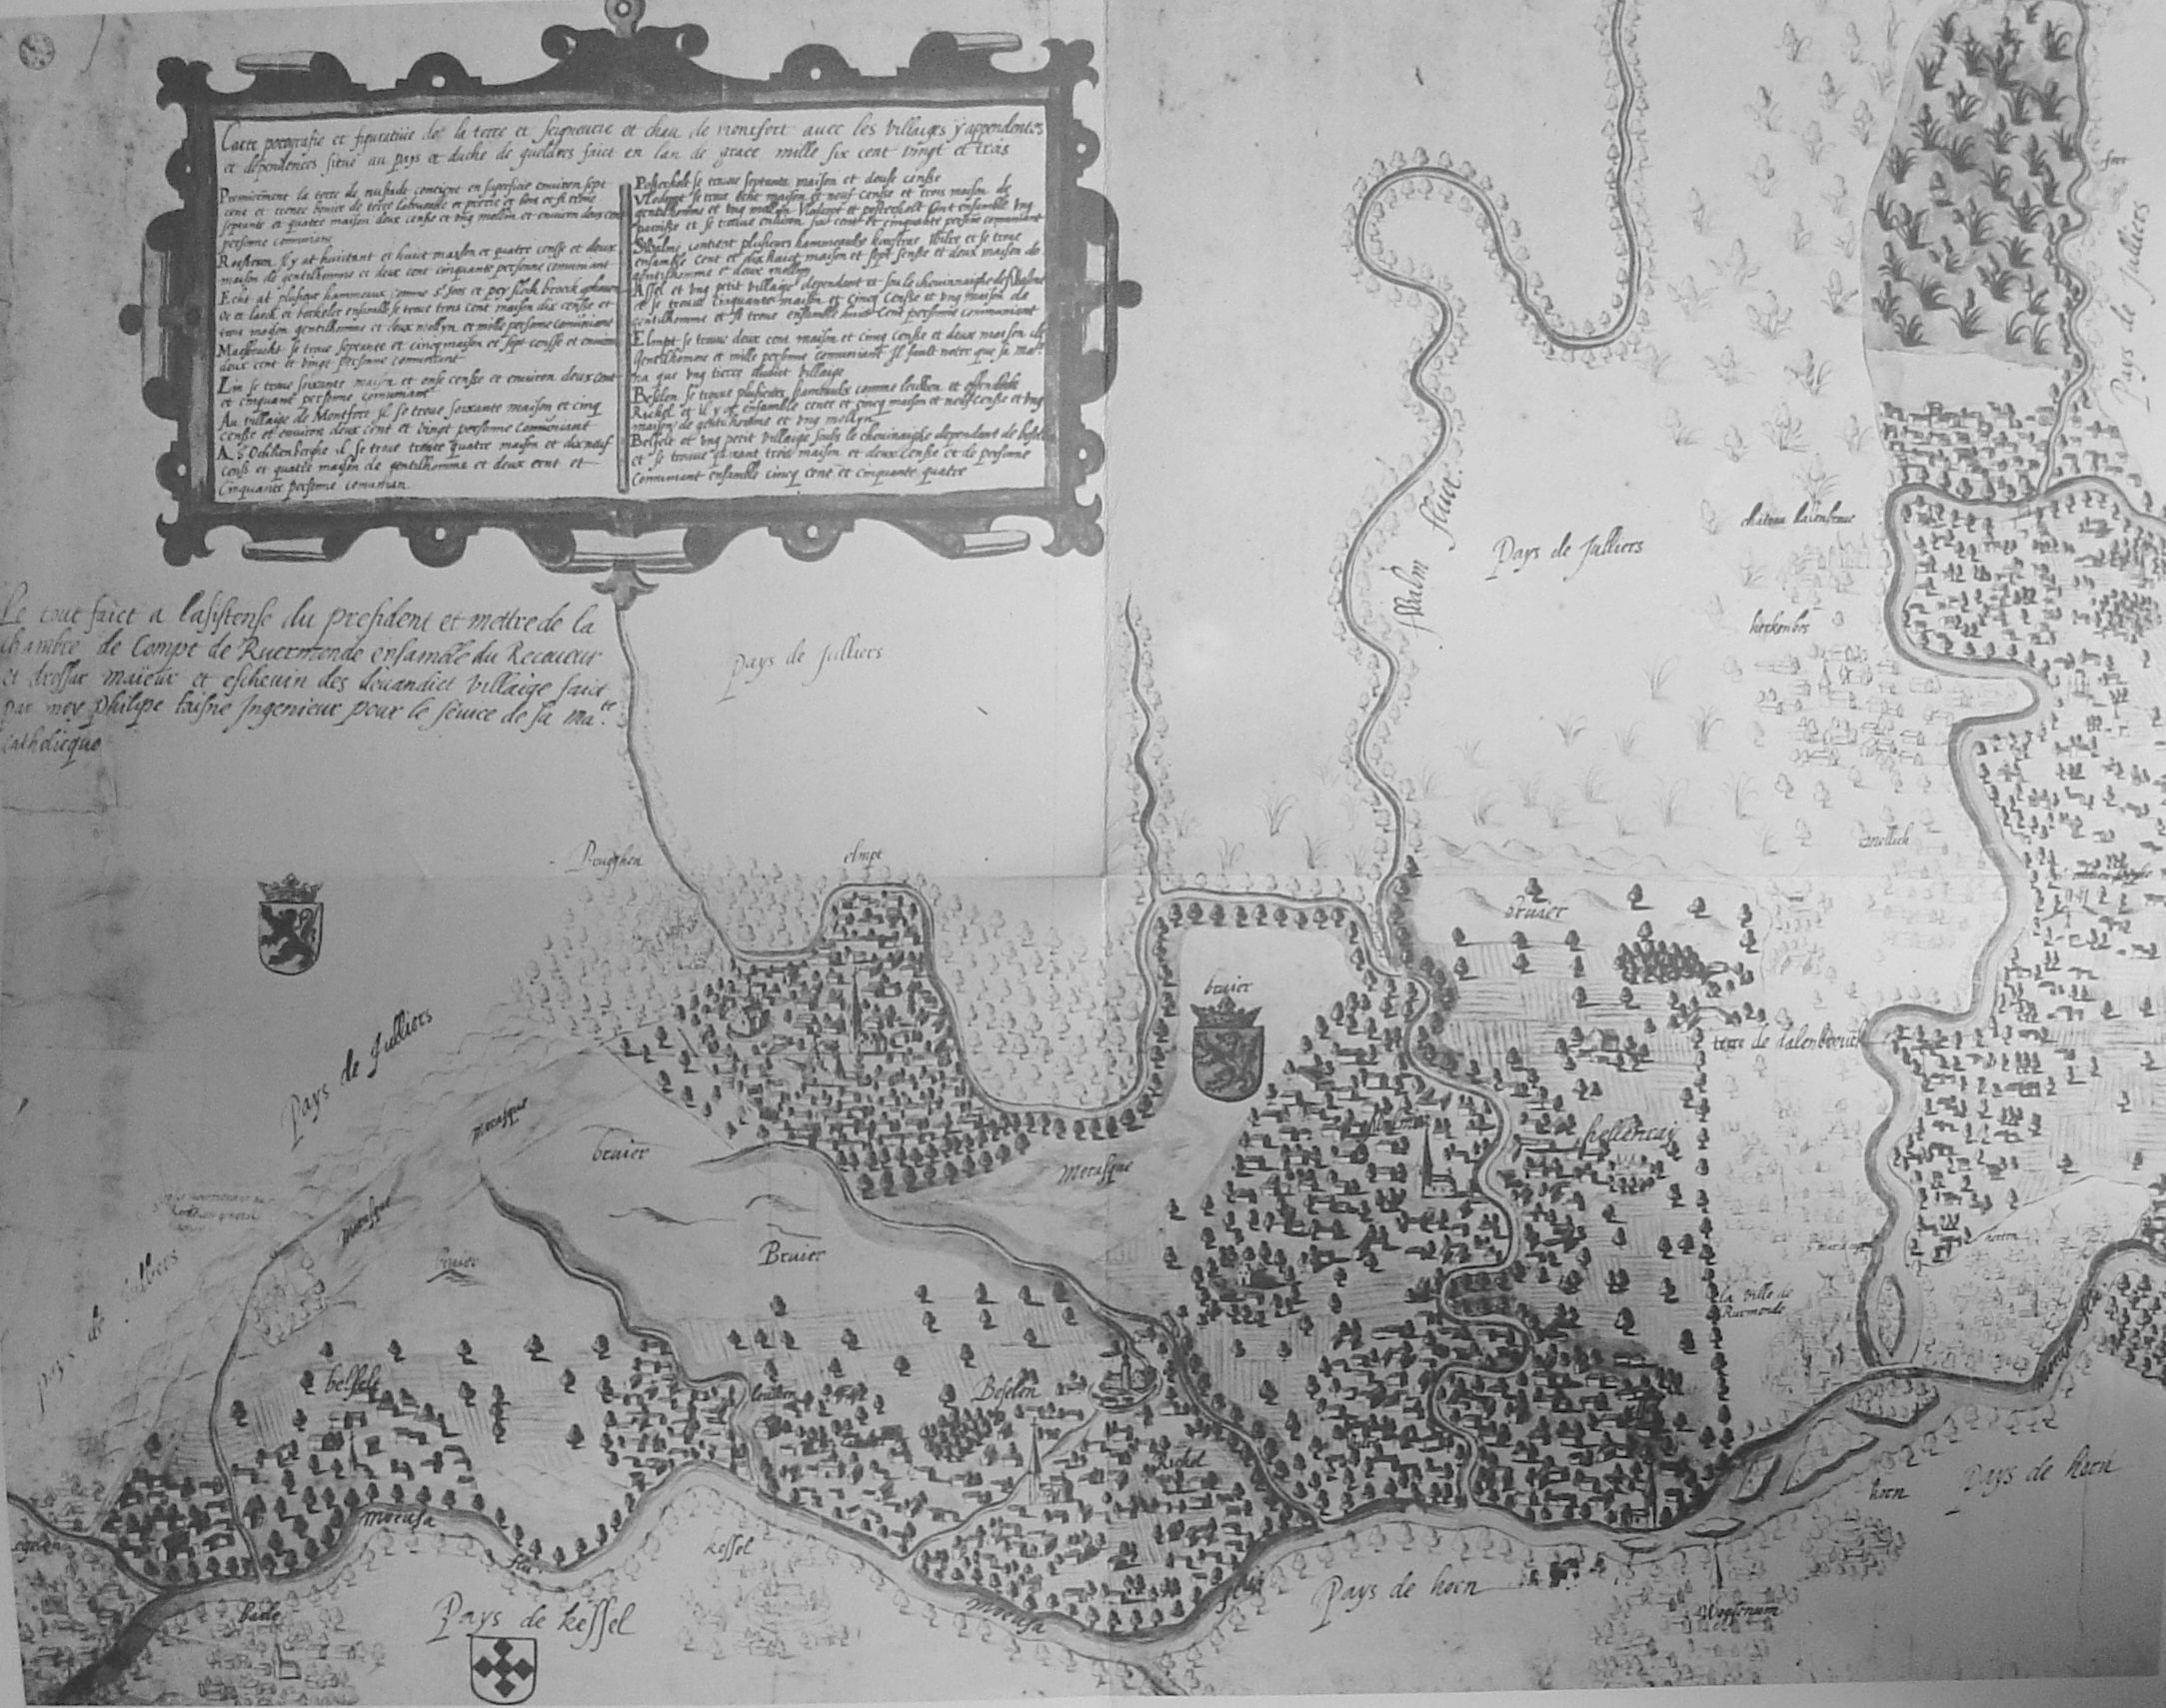 Carte potografie et figurative de la terre et seigneurie et chau de montfort avec les villaiges y appendentes
et dependences situé au pays et duché de gueldres faict en lan de grace mille six cent vingt et trois
Premierement la terre de nustadt contient en superficie environ sept
cent et trente bonire de terre labourable et prerie et bois et si treuve
septante et quatre maison deux cense et ung mollin et environ deux cent
personne communians
Rosteren il y at huictant et huict maison et quatre cense et deux
maison de gentilhomme et deux cent cinquante personne comuniant
Echt at plusieur hammeaux comme st Joos et pey slech broeck
et laeck et berkeler ensamble se trove trois cent maison dix censse et
trois maison gentilhomme et deux mollyn et mille personne comuniant
Masbracht se trove septante et cincq maison et sept censse et environ
deux cent et vingt personne comuniant
Lin se trove soixante maison et onse censse et environ deux cent
et cinquant personne comuniant
Au village de Montfort il se trove soixante maison et cinq
censse et environ deux cent et vingt personne comuniant
A St Odilienberghe il se trove trente quatre maison et dix neuf
censs et quatre maison de gentilhomme et deux cent et
Cinquante personne comunian
Posterholt se trouve septante maison et douse censse
Vlodorpt se trove othe maison et neuf censse et trois maison de
gentilhomme et ung mollyn Vlodorpt et posterholt sont ensamble ung
paroisse et se trouve environ six cent et cinquante persone comuniant
Swalme contient plusieurs hammeaulx et se trove
ensamble cent et dix huict maison et sept sensse et deux maison de
gentilshomme et deux mollyn
Assel et ung petit village dependent et sou le cheminaighe de Swalme
et se trouve cinquante maison et cincq censse et ung maison de
gentilhomme et st trove ensamble huict cent personne communiant
Elmpt se trouve deux cent maison et cinq censse et deux maison de
gentilhomme et mille personne comuniant Il fault noter que sa ma.te
na que ung tierce dudict villaige
Beselen se trouve plusieures hameaulx comme leuken et offenbeke
Rickel et il y at ensamble cente et cincq maison et neuf censse et ung
maison de gentilhomme et ung mollyn
Belfelt et ung petit villaige soubs le cheminaighe dependant de beselen
et se trouve quarant trois maison et deux censse et de personne
Comuniant ensamble cincq cent et cinquante quatre
Le tout faict a lasistense du president et mettre de la
chambre de Compt de Ruermonde ensamble du Receveur
et drossar maieur et eschevin des devandict villaige faict
par moy Philipe taisne Ingenieur pour le service de sa ma.te
catholicque
Pays de Julliers
fort
Pays de Julliers
swalm fluvt.
château
Pays de Julliers
herkenbos
mellich
elmpt
bruier
bruier
terre de dalenbroeck
Pays de Julliers
morasque
bruier
morasque
swalme
hellenraij
morasque
Bruier
bruier
pays de Julliers
la ville de
Rurmonde
belfelt
leuken
Beselen
Rickel
moeusa
flu
kessel
horn
Pays de horn
Pays de horn
Pays de kessel
moeusa
flu
baerlo
Weyssenum